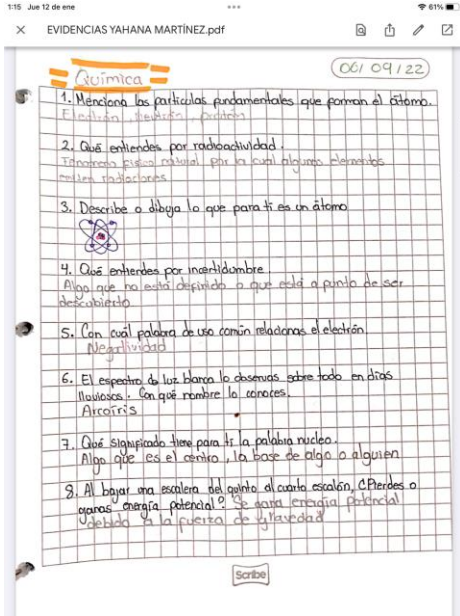 1:15 Jue 12 de ene
61%
EVIDENCIAS YAHANA MARTÍNEZ.pdf
Química
06/09/22
1. Menciona las partículas fundamentales que forman el átomo.
Electrón, neutrón, protón
2. Qué entiendes por radioactividad.
Fenómeno físico natural por la cual algunos elementos
emiten radiaciones
3. Describe o dibuja lo que para ti es un átomo
4. Qué entiendes por incertidumbre.
Algo que no está definido o que está a punto de ser
descubierto
5. Con cuál palabra de uso común relacionas el electrón.
Negatividad
6. El espectro de luz blanca lo observas sobre todo en días
lluviosos. Con qué nombre lo conoces.
Arcoíris
7. Qué significado tiene para ti la palabra nucleo.
Algo que es el centro, la base de algo o alguien
8. Al bajar una escalera del quinto al cuarto escalón, ¿Pierdes o
ganas energía potencial? Se gana energía potencial
debido a la fuerza de gravedad
Scribe